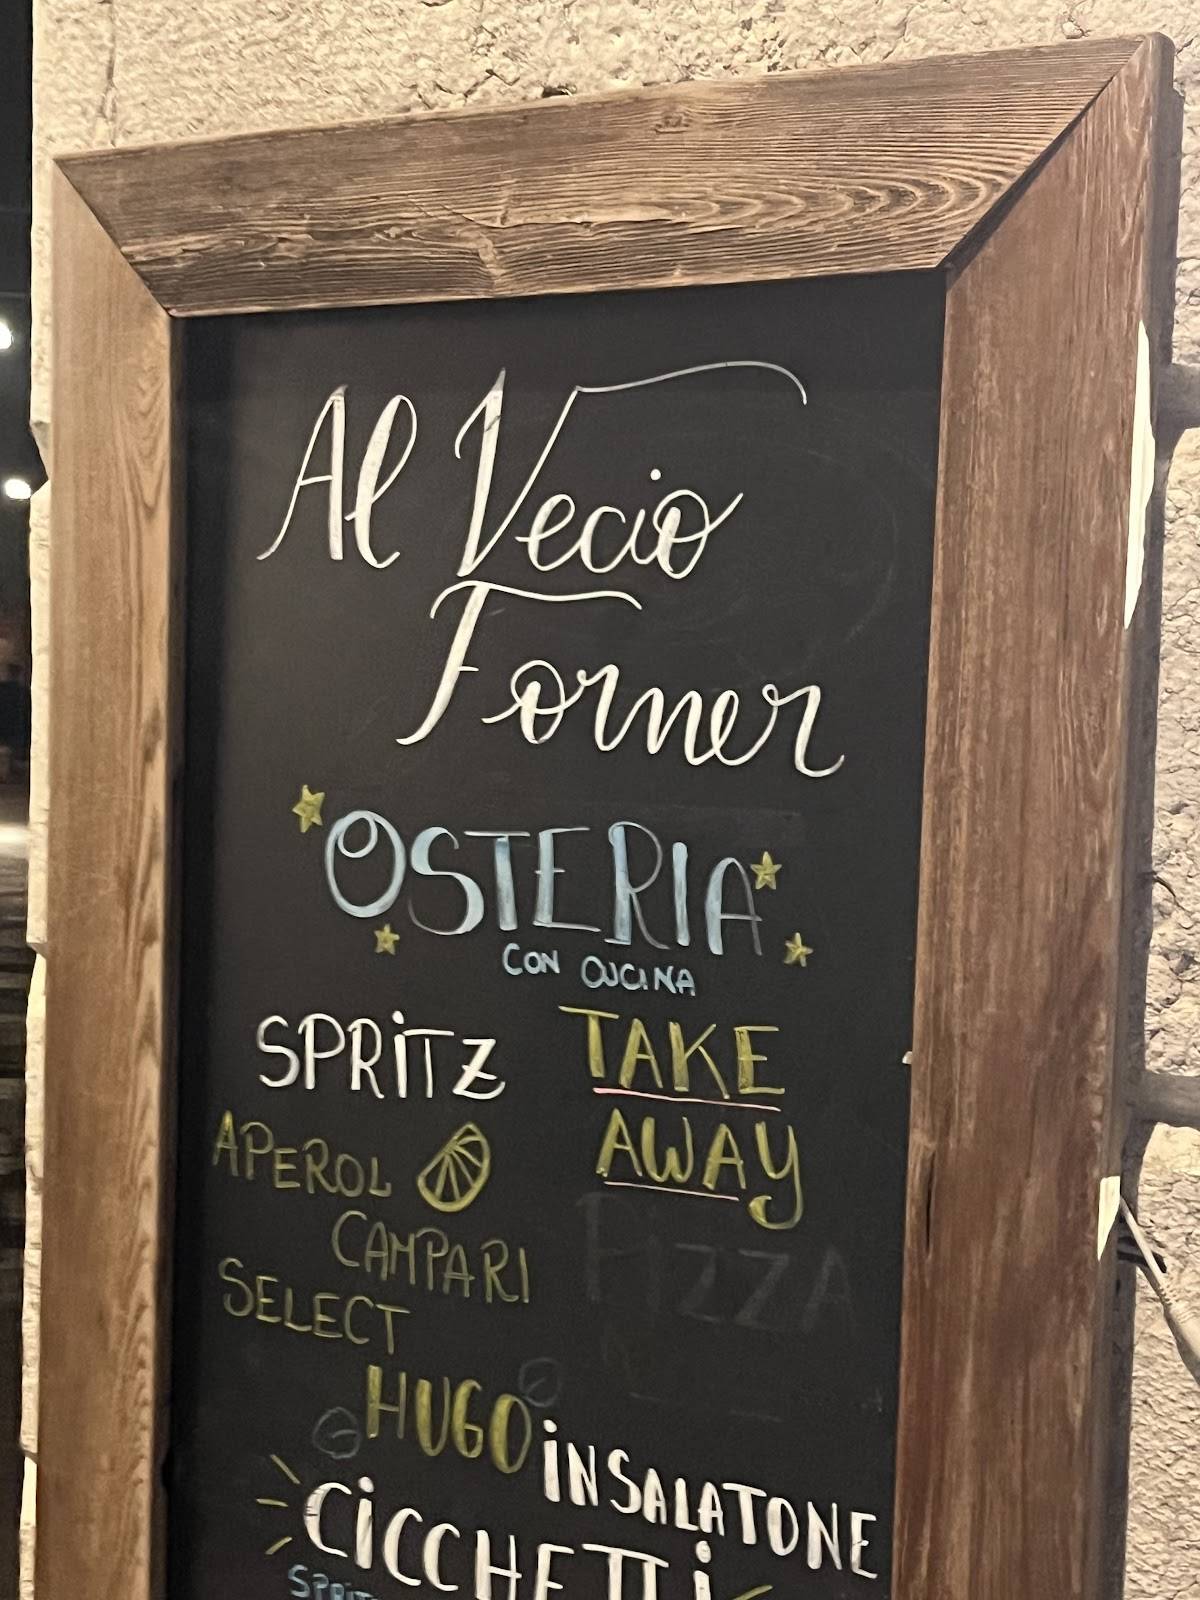 Al Vecio
Forner
OSTERIA
CON CUCINA
SPRITZ
TAKE
AWAY
APEROL
CAMPARI
SELECT
PIZZA
HUGO
INSALATONE
CICCHETTI